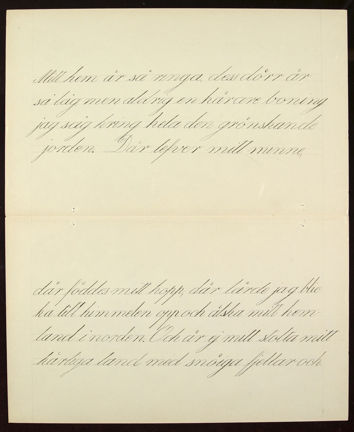 Mitt hem är så ringa, dess dörr är
så låg men aldrig en kärare boning
jag såg kring hela den grönskande
jorden. Där lefver mitt minne,
där föddes mitt hopp, där lärde jag blic
ka till himmelen opp och älska mitt hem-
land i norden. Och är ej mitt stolta mitt
härliga land med snöiga fjellar och